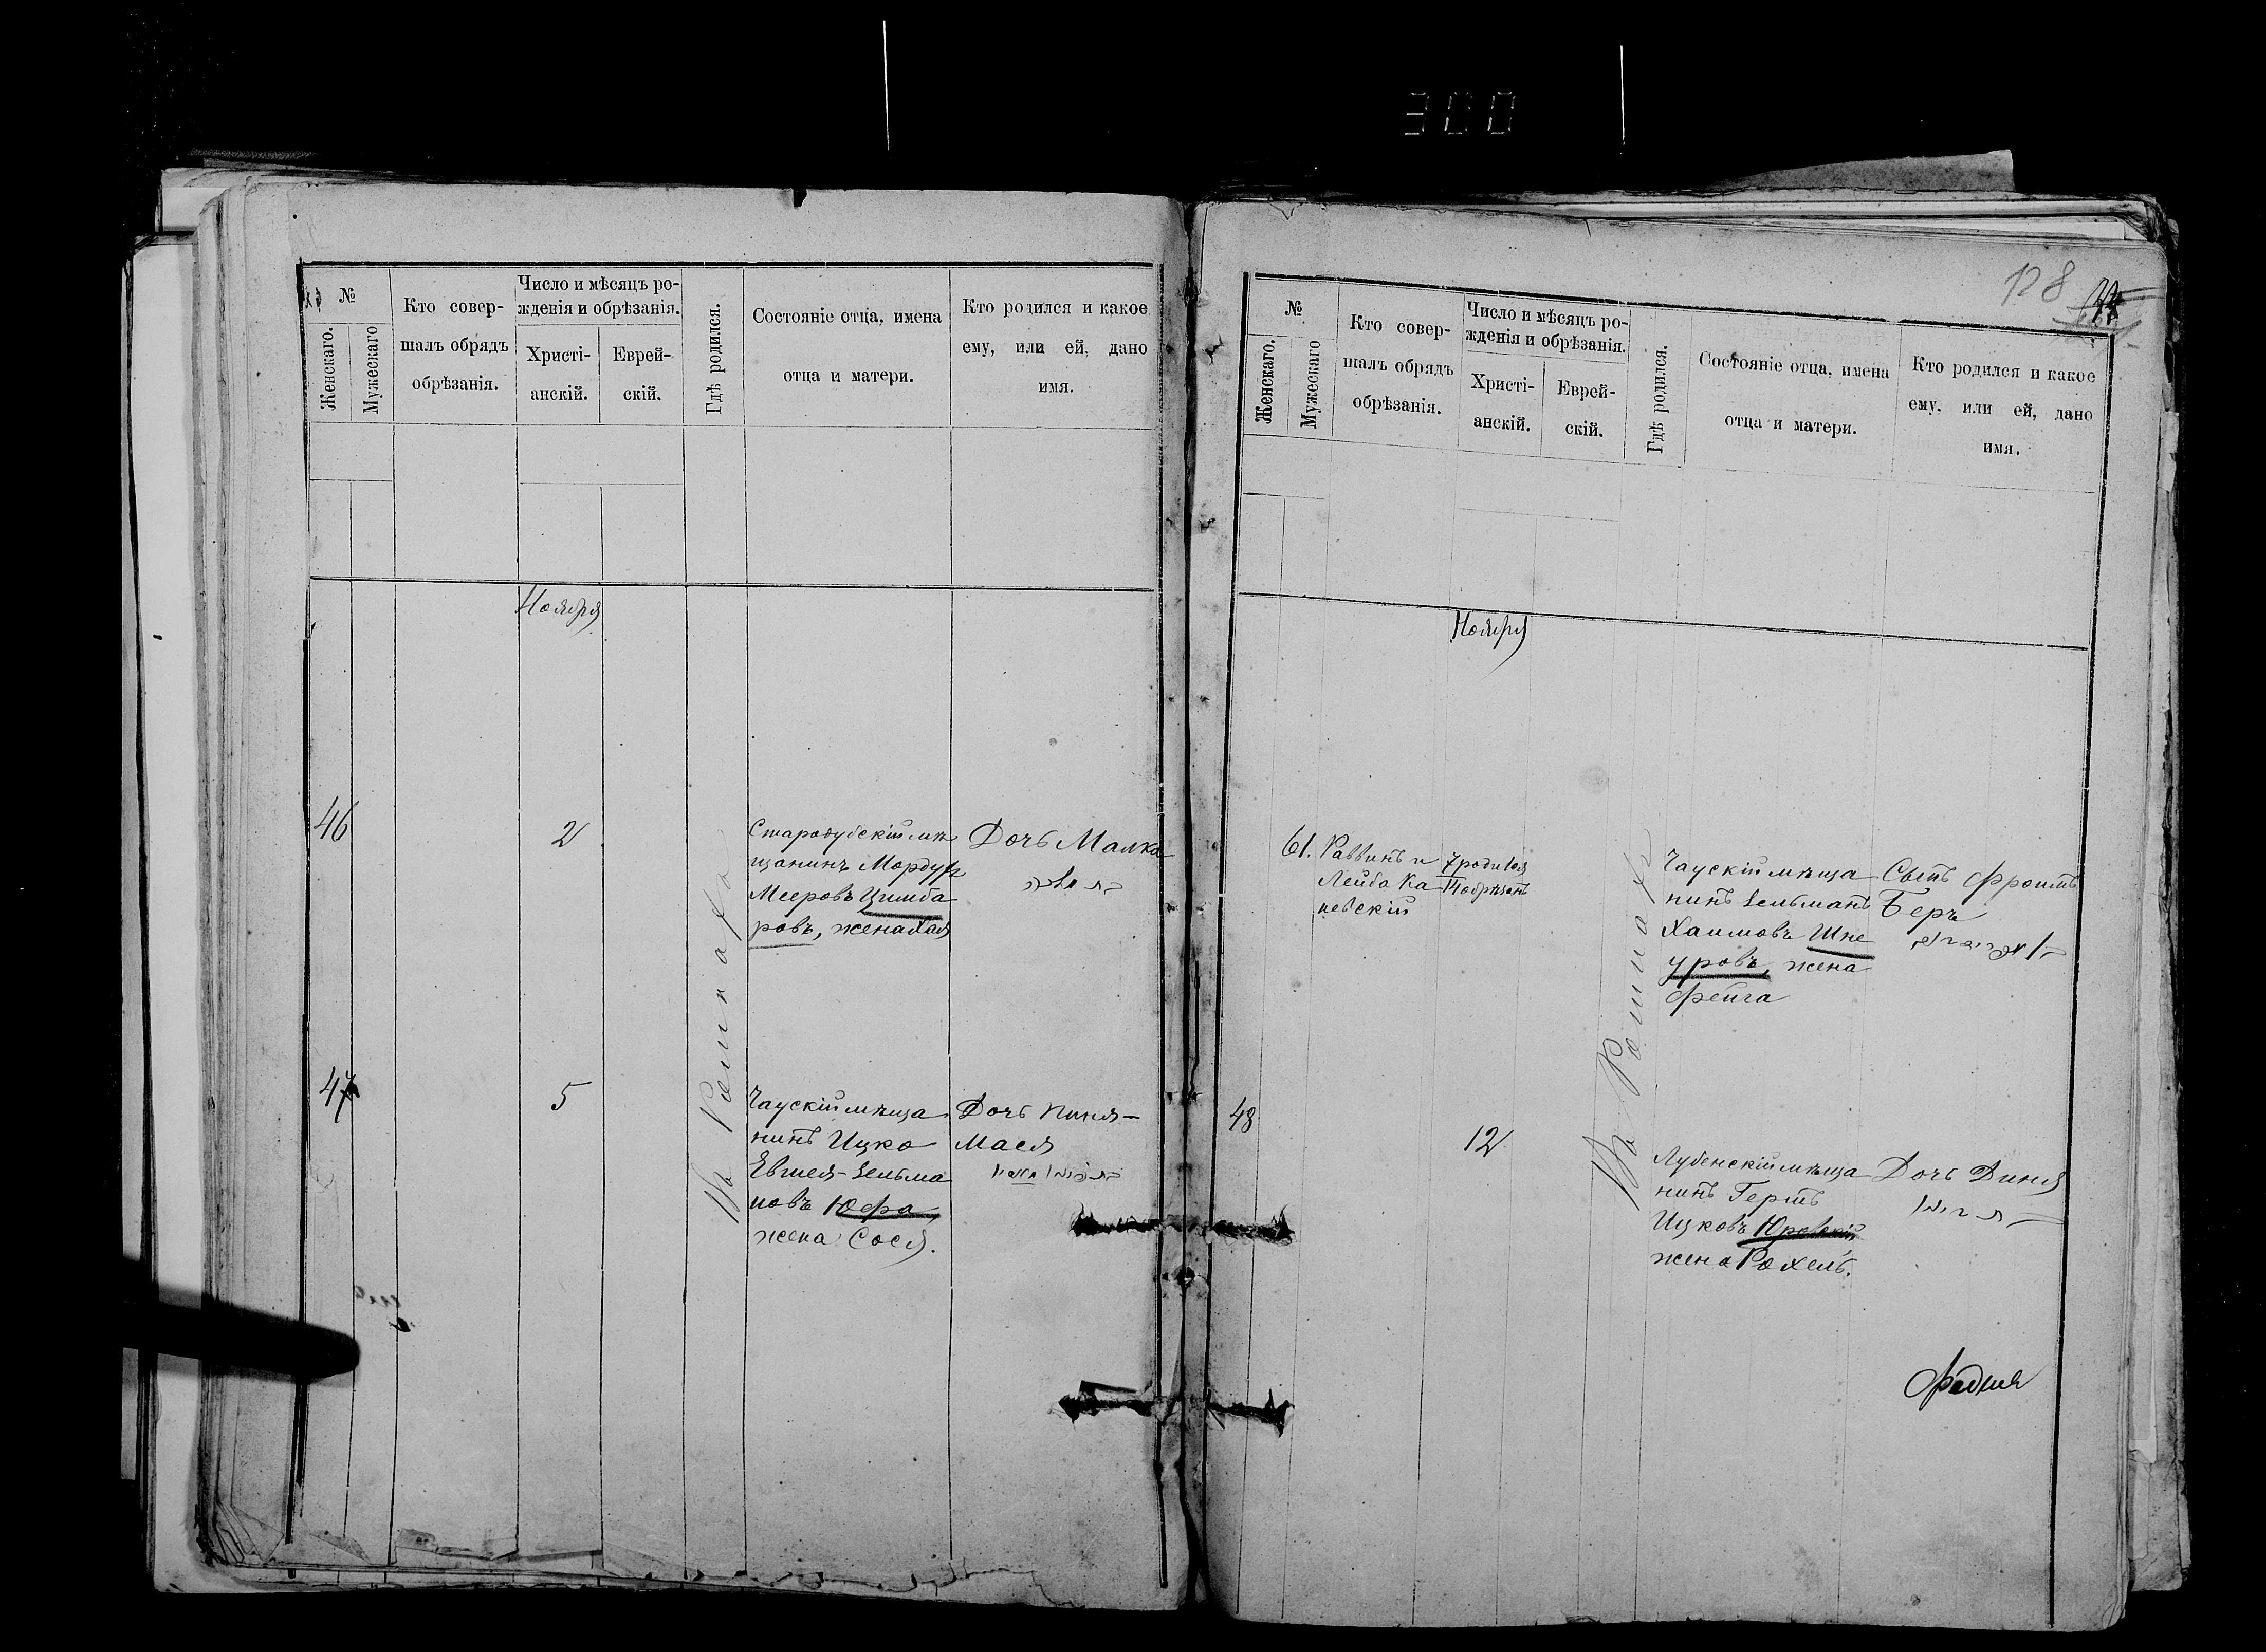 300
№
Женскаго.
Мужескаго
Кто совер-
шалъ обрядъ
обрѣзанія.
Число и мѣсяцъ ро-
жденія и обрѣзанія.
Христі-
анскій.
Еврей-
скій.
Гдѣ родился.
Состояніе отца, имена
отца и матери.
Кто родился и какое
ему, или ей, дано
имя.
Ноября
46
2
Стародубскій мѣ
щанинъ Мордух
Мееровъ Цимба
ровъ, жена Хая
Дочь Малка
47
5
Чаускій мѣща
нинъ Ицко
Евшея-Зельма
новъ Юфа,
жена Сося.
Дочь
Мася
128
№
Женскаго.
Мужескаго
Кто совер-
шалъ обрядъ
обрѣзанія.
Число и мѣсяцъ ро-
жденія и обрѣзанія.
Христі-
анскій.
Еврей-
скій.
Гдѣ родился.
Состояніе отца, имена
отца и матери.
Кто родился и какое
ему, или ей, дано
имя.
Ноября
61.
Раввинъ и
Лейба Ка
невскій
Чаускій мѣща
нинъ Зельманъ
Хаимовъ Шне
уровъ, жена
Фейга
Сынъ Фроимъ
Беръ
48
12
Лубенскій мѣща
нинъ Гершъ
Ицковъ Юровскій
жена Рохель.
Дочь Диня